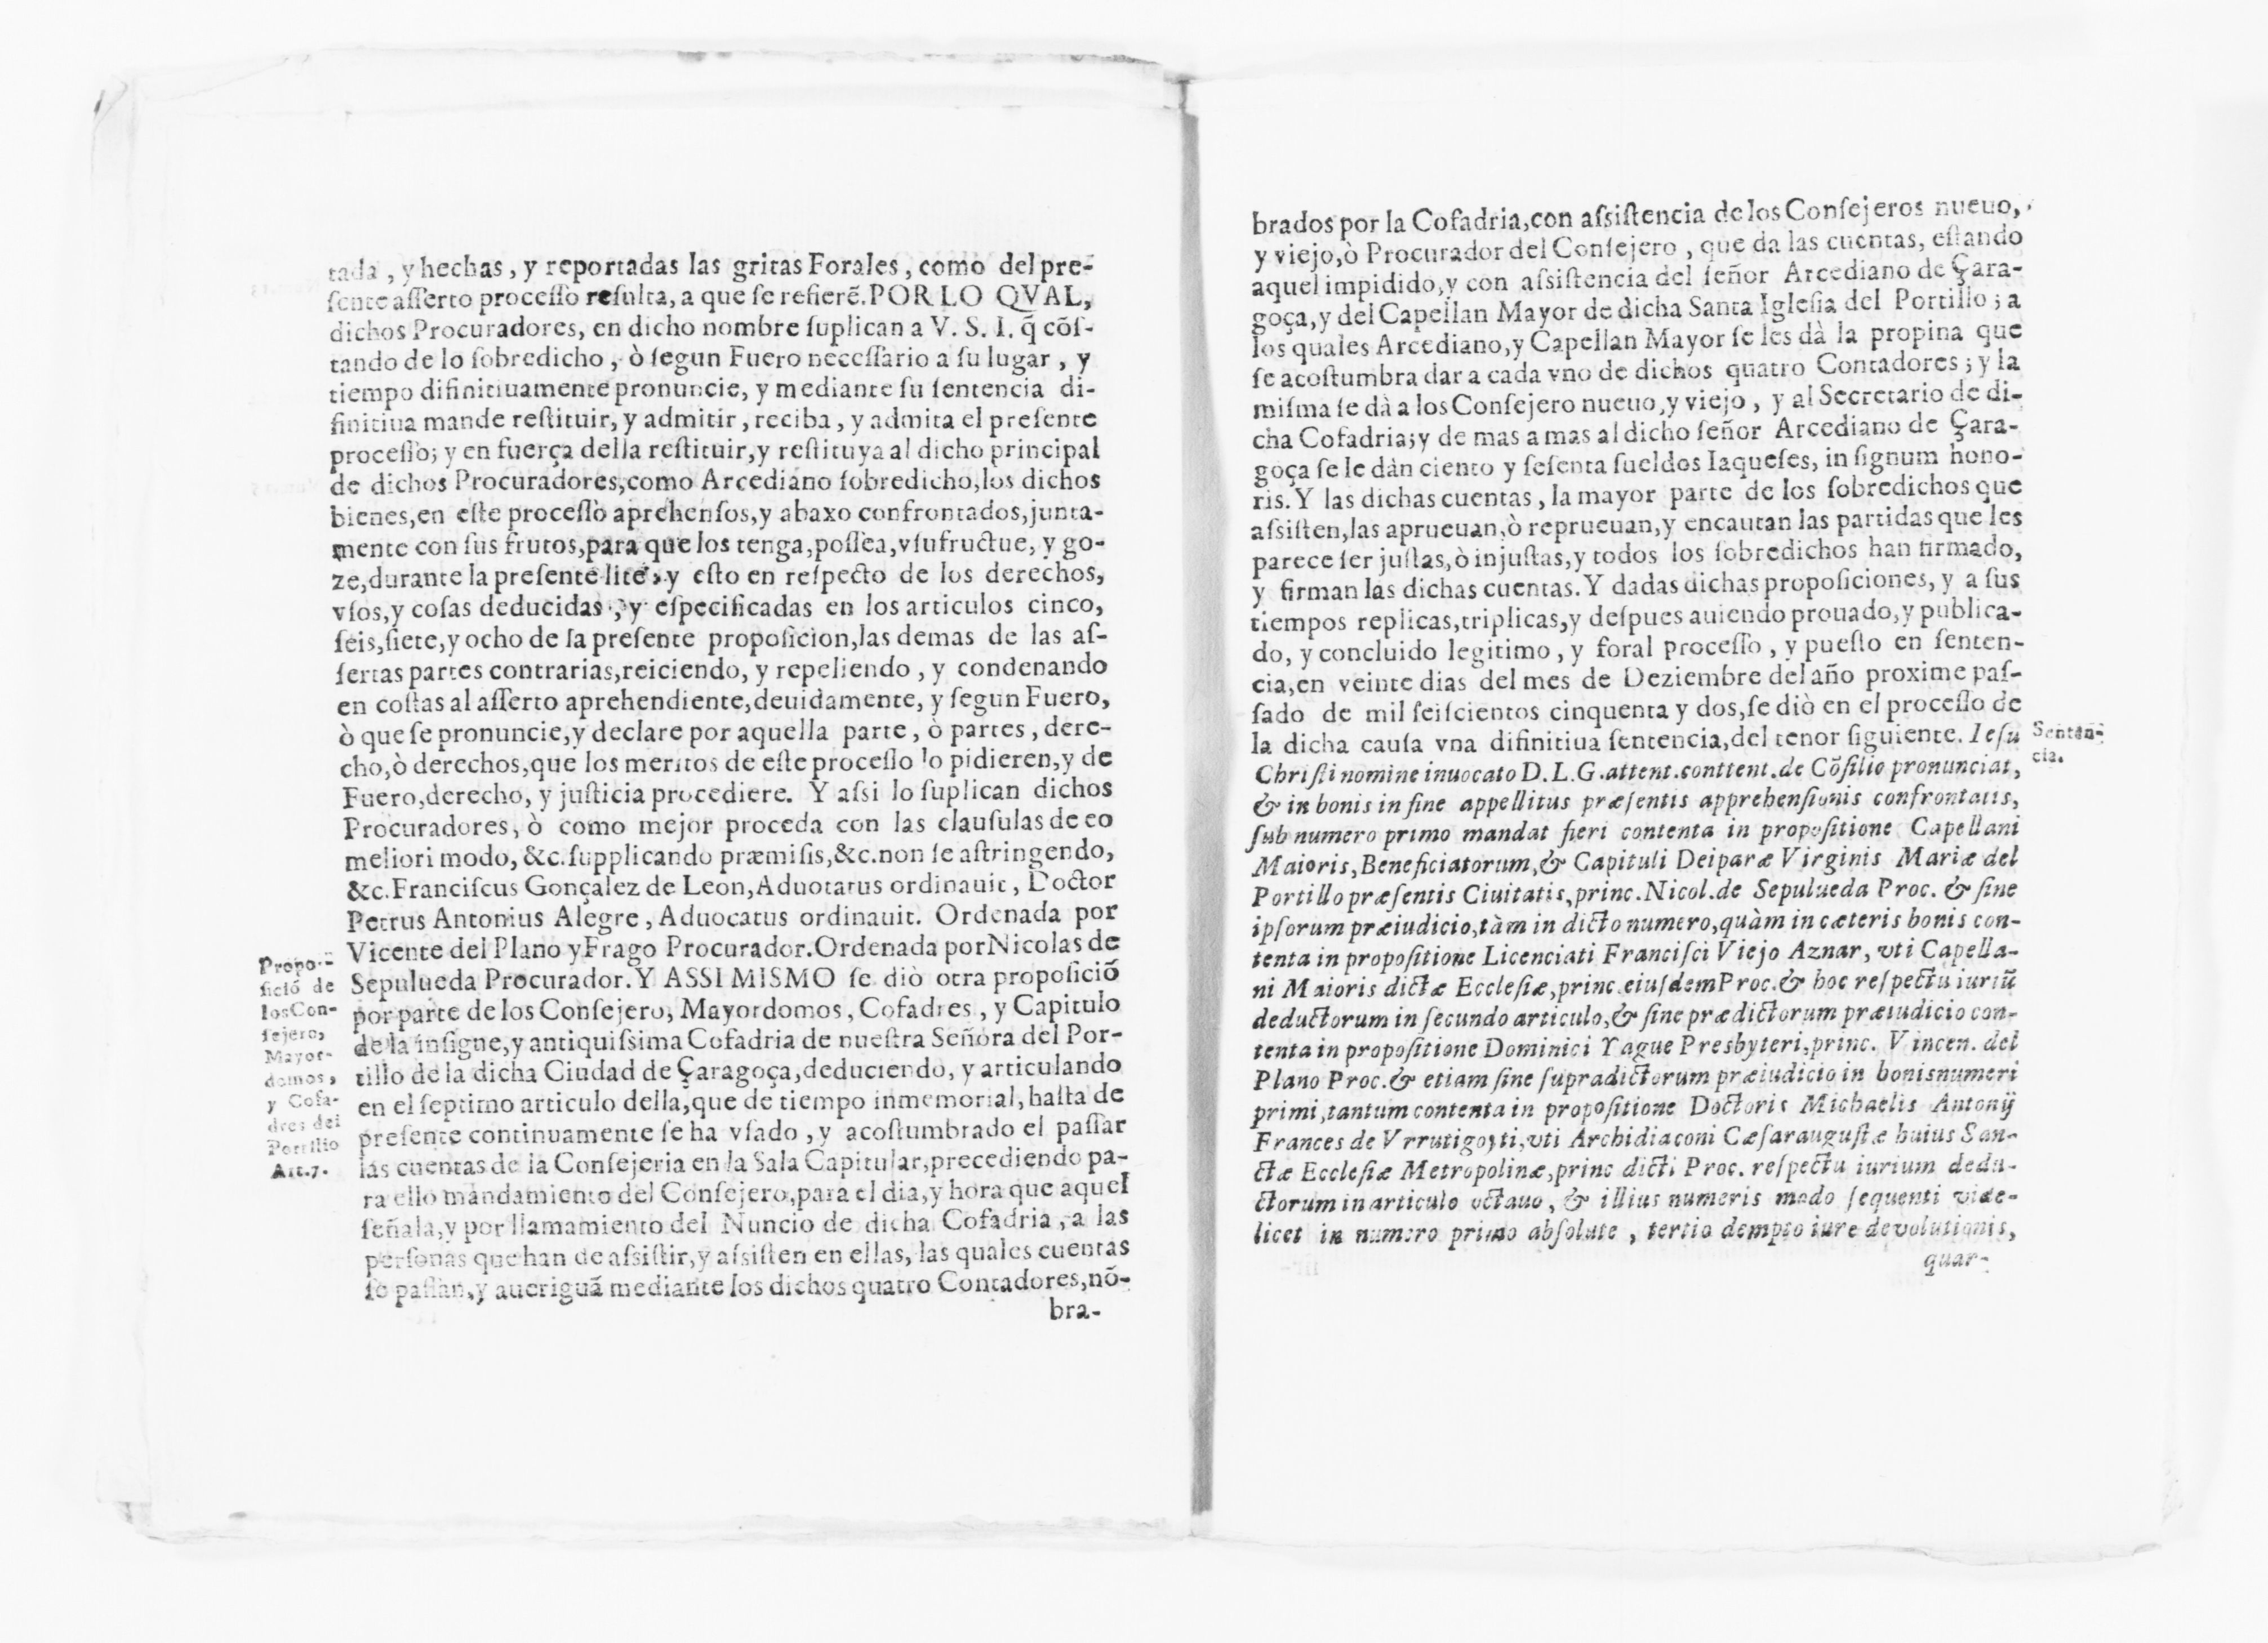 tada, y hechas, y reportadas las gritas Forales, como del pre-
ſente aſſerto proceſſo reſulta, a que ſe refierẽ. POR LO QVAL,
dichos Procuradores, en dicho nombre ſuplican a V. S. I. q̃ cõſ-
tando de lo ſobredicho, ò ſegun Fuero neceſſario a ſu lugar, y
tiempo difinitiuamente pronuncie, y mediante ſu ſentencia di-
finitiua mande reſtituir, y admitir, reciba, y admita el preſente
proceſſo; y en fuerça della reſtituir, y reſtituya al dicho principal
de dichos Procuradores, como Arcediano ſobredicho, los dichos
bienes, en eſte proceſſo aprehenſos, y abaxo confrontados, junta-
mente con ſus frutos, para que los tenga, poſſea, vſufructue, y go-
ze, durante la preſente lite, y eſto en reſpecto de los derechos,
vſos, y coſas deducidas, y eſpecificadas en los articulos cinco,
ſeis, ſiete, y ocho de la preſente propoſicion, las demas de las aſ-
ſertas partes contrarias, reiciendo, y repeliendo, y condenando
en coſtas al aſſerto aprehendiente, deuidamente, y ſegun Fuero,
ò que ſe pronuncie, y declare por aquella parte, ò partes, dere-
cho, ò derechos, que los meritos de eſte proceſſo lo pidieren, y de
Fuero, derecho, y juſticia procediere. Y aſsi lo ſuplican dichos
Procuradores, ò como mejor proceda con las clauſulas de eo
meliori modo, &c. ſupplicando præmiſis, &c. non ſe aſtringendo,
&c. Franciſcus Gonçalez de Leon, Aduocatus ordinauit, Doctor
Petrus Antonius Alegre, Aduocatus ordinauit. Ordenada por
Vicente del Plano y Frago Procurador. Ordenada por Nicolas de
Sepulueda Procurador. Y ASSI MISMO ſe diò otra propoſiciõ
por parte de los Conſejero, Mayordomos, Cofadres, y Capitulo
de la inſigne, y antiquiſsima Cofadria de nueſtra Señora del Por-
tillo de la dicha Ciudad de Çaragoça, deduciendo, y articulando
en el ſeptimo articulo della, que de tiempo inmemorial, haſta de
preſente continuamente ſe ha vſado, y acoſtumbrado el paſſar
las cuentas de la Conſejeria en la Sala Capitular, precediendo pa-
ra ello mandamiento del Conſejero, para el dia, y hora que aquel
ſeñala, y por llamamiento del Nuncio de dicha Cofadria, a las
perſonas que han de aſsiſtir, y aſsiſten en ellas, las quales cuentas
ſe paſſan, y aueriguã mediante los dichos quatro Contadores, nõ-
bra-
Propo-
ſiciõ de
los Con-
ſejero,
Mayor-
domos,
y Cofa-
dres del
Portillo
Art. 7.
brados por la Cofadria, con aſsiſtencia de los Conſejeros nueuo,
y viejo, ò Procurador del Conſejero, que da las cuentas, eſtando
aquel impidido, y con aſsiſtencia del ſeñor Arcediano de Çara-
goça, y del Capellan Mayor de dicha Santa Igleſia del Portillo; a
los quales Arcediano, y Capellan Mayor ſe les dà la propina que
ſe acoſtumbra dar a cada vno de dichos quatro Contadores; y la
miſma ſe dà a los Conſejero nueuo, y viejo, y al Secretario de di-
cha Cofadria; y de mas a mas al dicho ſeñor Arcediano de Çara-
goça ſe le dàn ciento y ſeſenta ſueldos Iaqueſes, in ſignum hono-
ris. Y las dichas cuentas, la mayor parte de los ſobredichos que
aſsiſten, las aprueuan, ò reprueuan, y encautan las partidas que les
parece ſer juſtas, ò injuſtas, y todos los ſobredichos han firmado,
y firman las dichas cuentas. Y dadas dichas propoſiciones, y a ſus
tiempos replicas, triplicas, y deſpues auiendo prouado, y publica-
do, y concluido legitimo, y foral proceſſo, y pueſto en ſenten-
cia, en veinte dias del mes de Deziembre del año proxime paſ-
ſado de mil ſeiſcientos cinquenta y dos, ſe diò en el proceſſo de
la dicha cauſa vna difinitiua ſentencia, del tenor ſiguiente. Ieſu
Chriſti nomine inuocato D. L. G. attent. conttent. de Cõſilio pronunciat,
& in bonis in fine appellitus præſentis apprehenſionis confrontatis,
ſub numero primo mandat fieri contenta in propoſitione Capellani
Maioris, Beneficiatorum, & Capituli Deiparæ Virginis Mariæ del
Portillo præſentis Ciuitatis, princ. Nicol. de Sepulueda Proc. & ſine
ipſorum præiudicio, tàm in dicto numero, quàm in cæteris bonis con-
tenta in propoſitione Licenciati Franciſci Viejo Aznar, vti Capella-
ni Maioris dictæ Eccleſiæ, princ. eiuſdem Proc. & hoc reſpectu iuriũ
deductorum in ſecundo articulo, & ſine prædictorum præiudicio con-
tenta in propoſitione Dominici Yague Presbyteri, princ. Vincen. del
Plano Proc. & etiam ſine ſupradictorum præiudicio in bonis numeri
primi, tantum contenta in propoſitione Doctoris Michaelis Antonij
Frances de Vrrutigoyti, vti Archidiaconi Cæſarauguſtæ huius San-
ctæ Eccleſiæ Metropolinæ, princ dicti Proc. reſpectu iurium dedu-
ctorum in articulo octauo, & illius numeris modo ſequenti vide-
licet in numero primo abſolute, tertio dempto iure devolutionis,
quar-
Senten-
cia.